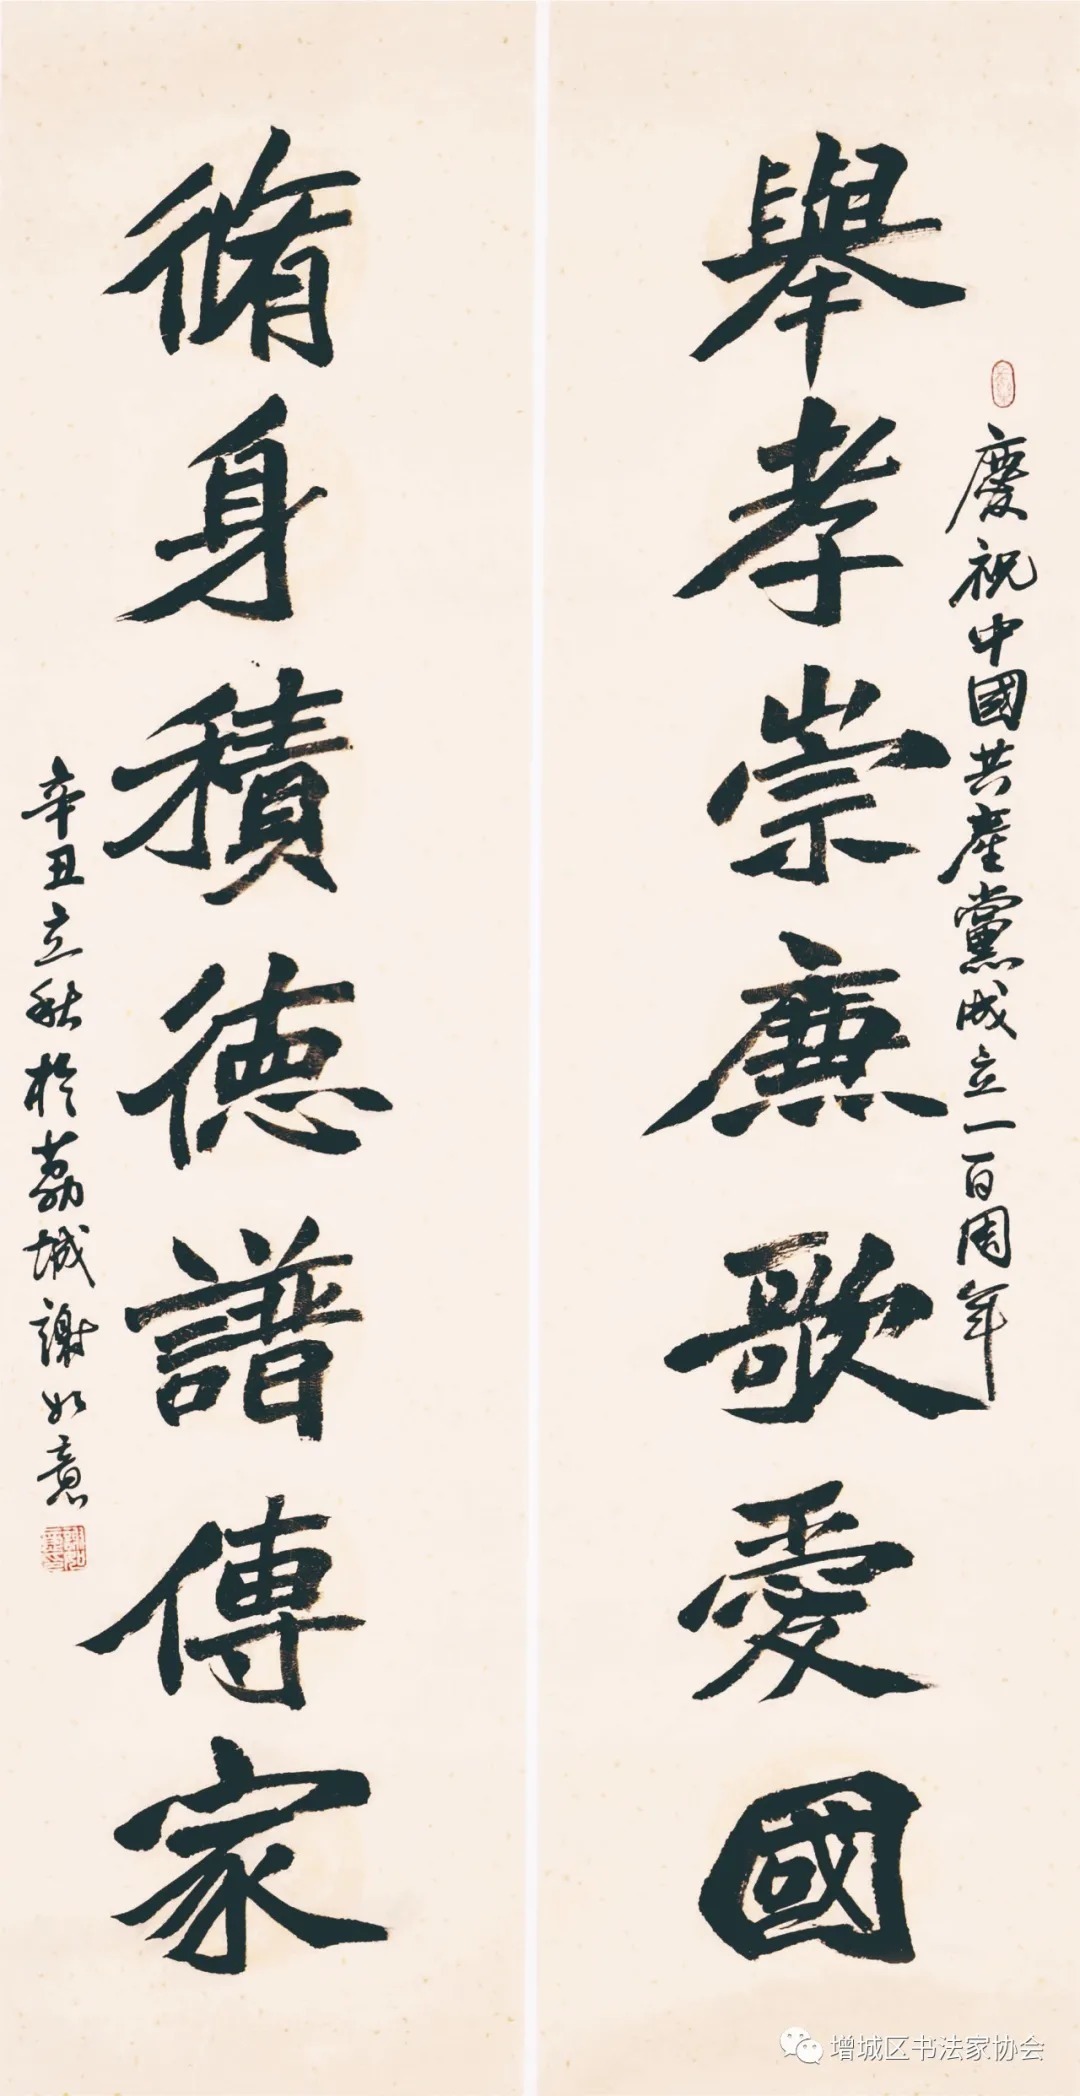 慶祝中國共產黨成立一百周年
舉孝崇廉歌愛國
脩身積德譜傳家
辛丑立秋於荔城謝如意
增城区书法家协会